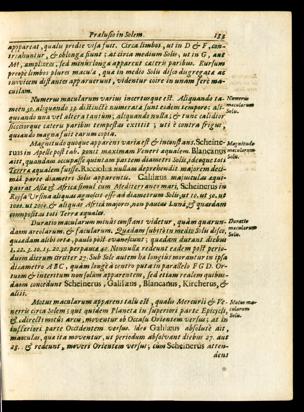 Prælusio in Solem. 133
appareat, qualu pridie visa fuit. Circa limbos, ut in D & F, con-
trahuntur, & oblonga fiunt: at circa medium Solis, ut in G, aut
M, ampliores, sed minus longa apparent cæteris paribus. Rursum
prope limbos plures macula, qua in medio Solis disco disgregata ac
invicem distantes apparuerunt, videntur coire in unam ferè ma-
culam.
Numerus macularum varius incertusque est. Aliquando ta-
men 30. aliquando 33 distinctè numerata sunt eodem tempore: ali-
quando una vel altera tantum; aliquando nulla; & tunc calidior
siccior que cæteris paribus tempestas extitit; uti è contra frigus,
quando magna fuit earum copia.
Numerus
macularum
Solis.
Magnitudo quoque apparens varia est & inconstans. Scheine-
rus in Apelle post tab. ponit maximam Veneri æqualem. Blancanus
ait, quandam occupasse quintam partem diametri Solis, ideoque totâ
Terrâ æqualem fuisse. Ricciolus nullam deprehendit majorem deci-
mâ parte diametri Solis apparentis. Galilæus majusculas æqui-
parat Asiæ & Africæ simul cum Mediterraneo mari, Scheinerus in
Rosa Ursina aliquas agnoscit esse ad diametrum Solis, ut 10. ut 30. ut
100. ut 200, & aliquas Africâ majores, non paucas Lunâ, & quasdam
compositas totâ Terrâ æquales.
Magnitudo
macularum
Solis.
Duratio macularum minùs constans videtur, quàm quarun-
dam areolarum, & facularum. Quædam subitò in medio Solis disco,
quædam alibi orta, paulò post evanescunt; quædam durant diebus
1. 2. 3. 10. 15. 20. 30. perpauca 40. Nonnulla redeunt eædem post perio-
dum dierum circiter 27. Sub Sole autem ba longius morantur in ipsa
diametro ABC, quàm longè à centro puta in parallelo FGD. Or-
tum & interitum non solùm apparentem, sed etiam realem quibus-
dam concedunt Scheinerus, Galilæus, Blancanus, Kircherus, &
alii.
Duratio
macularum
Solis.
Motus macularum apparens talis est, qualis Mercurii & Ve-
neris circa Solem; qui quidem Planeta in superiori parte Epicycli,
& directi motus arcu, moventur ab Occasu Orientem versus; at in
inferiori parte Occidentem versus. ideo Galilæus absolutè ait,
maculas, qua ita moventur, ut periodum absolvant diebus 27. aut
28. & redeunt, moveri Orientem versus; cum Scheinerus atten-
dens
Motus ma-
cularum
Solis.